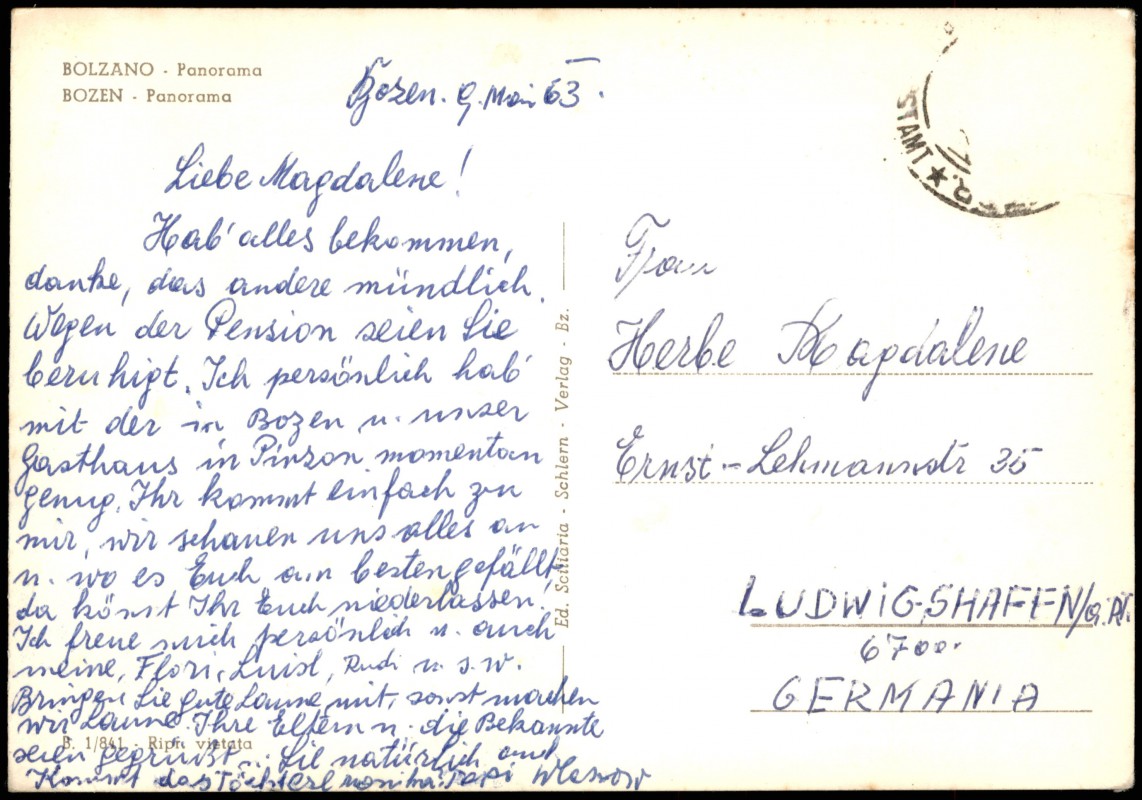 BOLZANO - Panorama
BOZEN - Panorama
Bozen. 9. Mai 63.
Liebe Magdalene!
Hab' alles bekommen,
danke, das andere mündlich.
Wegen der Pension seien Sie
beruhigt. Ich persönlich hab'
mit der in Bozen u. unser
Gasthaus in Pinzon momentan
genug. Ihr kommt einfach zu
mir, wir schauen uns alles an
u. wo es Euch am besten gefällt,
da könnt Ihr Euch niederlassen!
Ich freue mich persönlich u. auch
meine, Flori, Luisl, Rudi u. s. w.
Bringen Sie gute Laune mit, sonst machen
wir Laune. Ihre Eltern u. die Bekannte
seien gegrüßt... Sie natürlich auch
Kommt das Töchterl
B. 1/841 - Ripr. vietata
Ed. Sciliaria - Schlern - Verlag - Bz.
STAMT ★
Frau
Herbe Magdalene
Ernst-Lehmannstr 35
LUDWIGSHAFEN/a. Rh.
6700.
GERMANIA